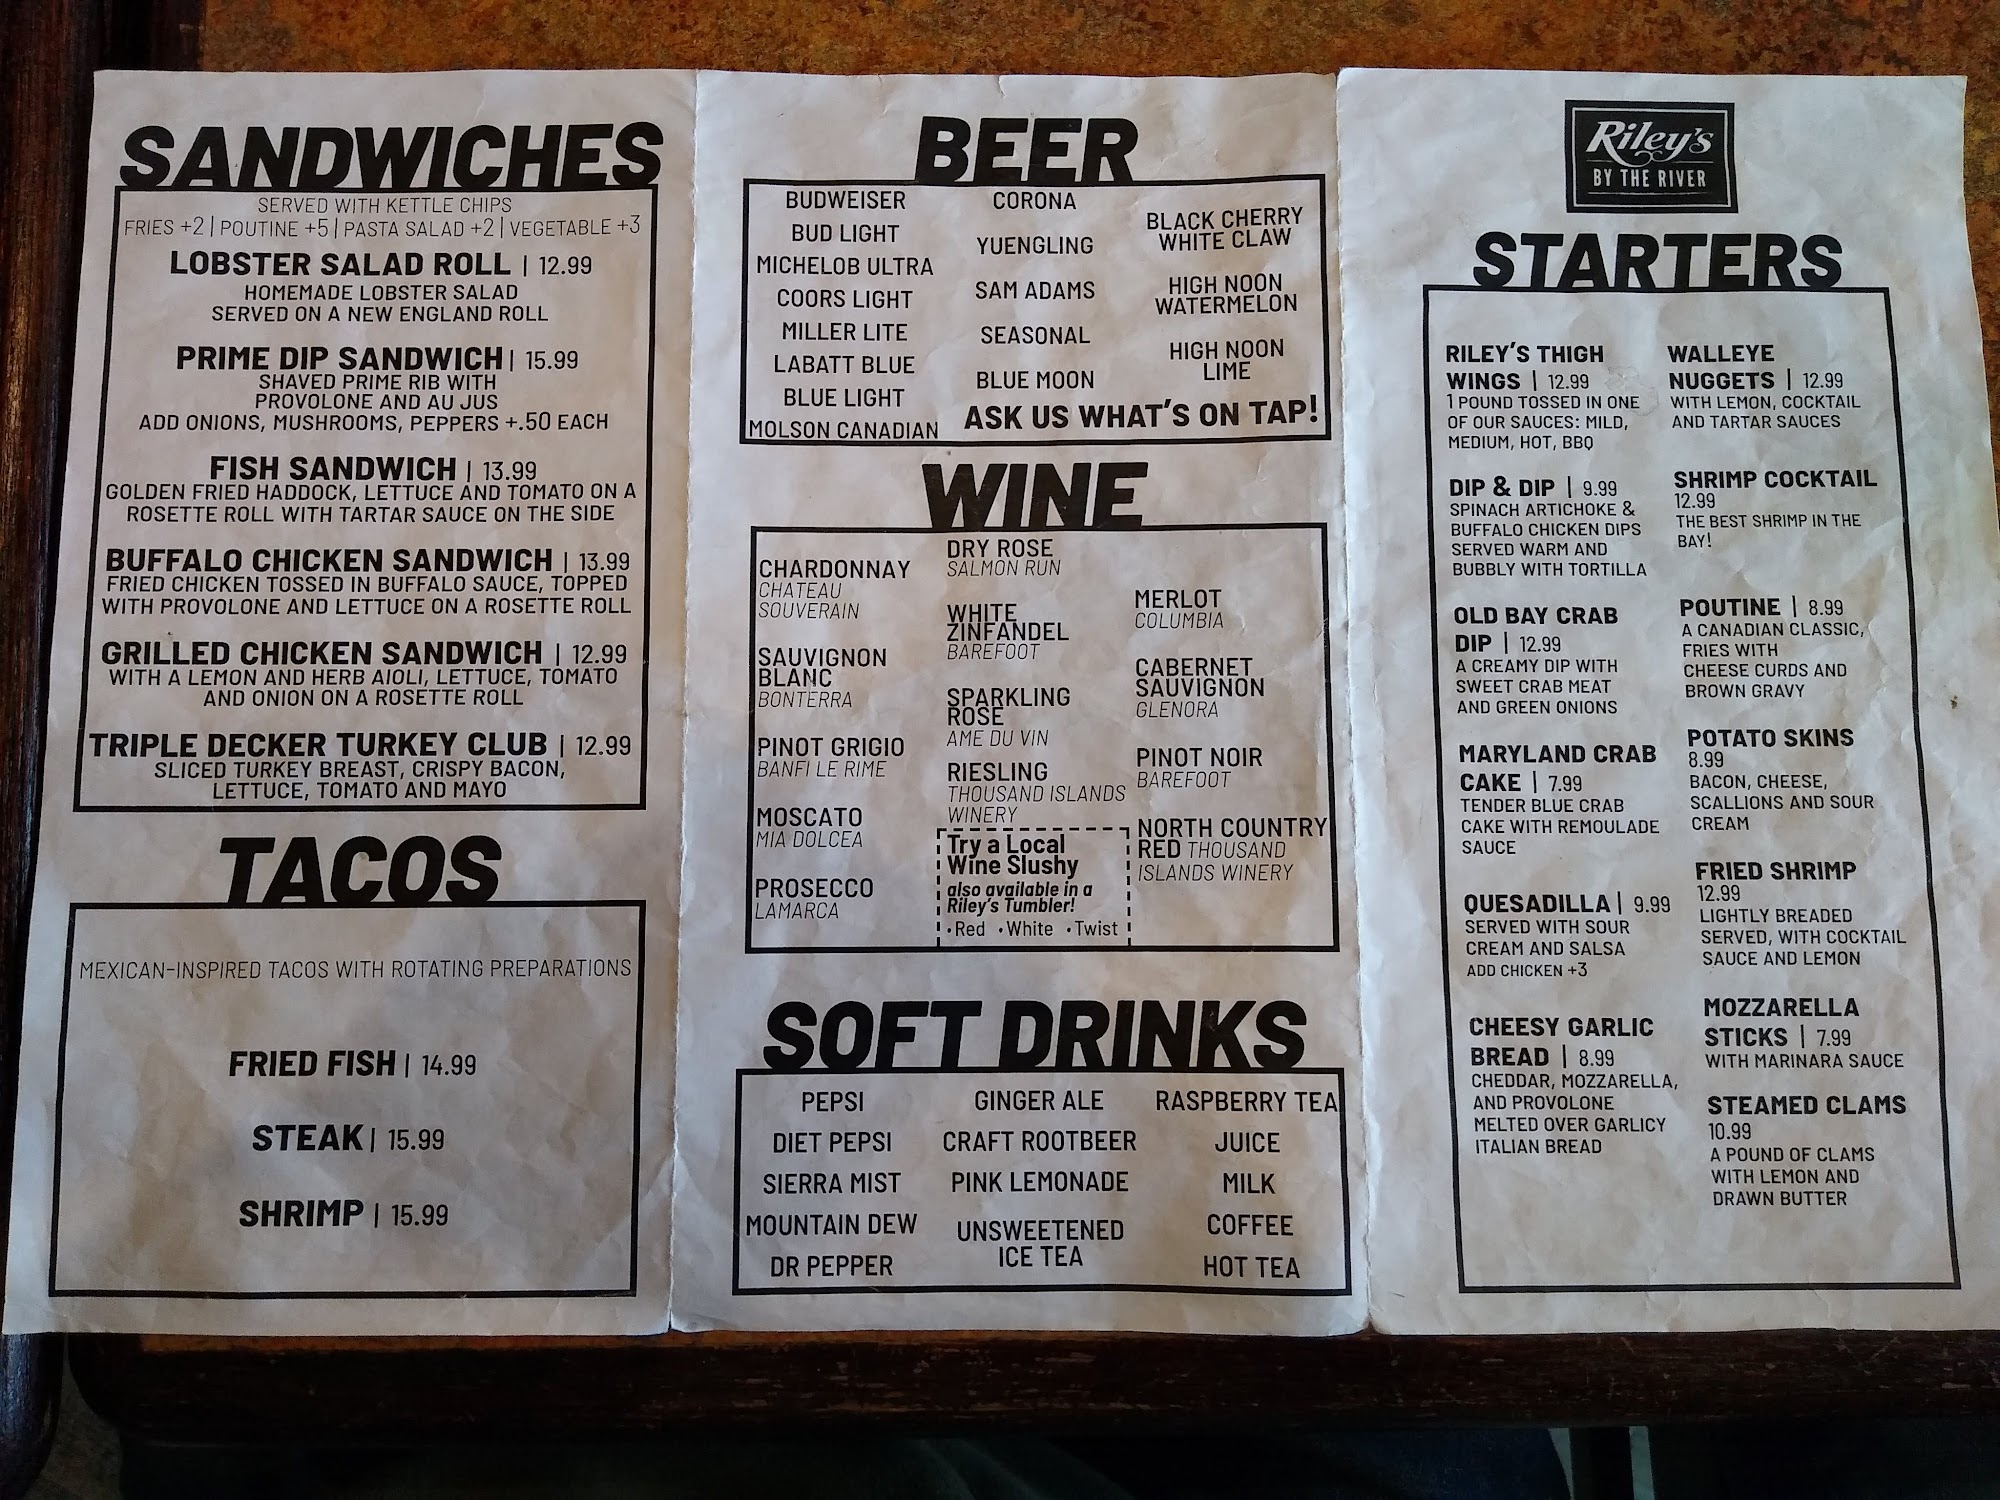 SANDWICHES
SERVED WITH KETTLE CHIPS
FRIES +2 | POUTINE +5 | PASTA SALAD +2 | VEGETABLE +3
LOBSTER SALAD ROLL | 12.99
HOMEMADE LOBSTER SALAD
SERVED ON A NEW ENGLAND ROLL
PRIME DIP SANDWICH | 15.99
SHAVED PRIME RIB WITH
PROVOLONE AND AU JUS
ADD ONIONS, MUSHROOMS, PEPPERS +.50 EACH
FISH SANDWICH | 13.99
GOLDEN FRIED HADDOCK, LETTUCE AND TOMATO ON A
ROSETTE ROLL WITH TARTAR SAUCE ON THE SIDE
BUFFALO CHICKEN SANDWICH | 13.99
FRIED CHICKEN TOSSED IN BUFFALO SAUCE, TOPPED
WITH PROVOLONE AND LETTUCE ON A ROSETTE ROLL
GRILLED CHICKEN SANDWICH | 12.99
WITH A LEMON AND HERB AIOLI, LETTUCE, TOMATO
AND ONION ON A ROSETTE ROLL
TRIPLE DECKER TURKEY CLUB | 12.99
SLICED TURKEY BREAST, CRISPY BACON,
LETTUCE, TOMATO AND MAYO
TACOS
MEXICAN-INSPIRED TACOS WITH ROTATING PREPARATIONS
FRIED FISH | 14.99
STEAK | 15.99
SHRIMP | 15.99
BEER
BUDWEISER
BUD LIGHT
MICHELOB ULTRA
COORS LIGHT
MILLER LITE
LABATT BLUE
BLUE LIGHT
MOLSON CANADIAN
CORONA
YUENGLING
SAM ADAMS
SEASONAL
BLUE MOON
BLACK CHERRY
WHITE CLAW
HIGH NOON
WATERMELON
HIGH NOON
LIME
ASK US WHAT'S ON TAP!
WINE
CHARDONNAY
CHATEAU
SOUVERAIN
SAUVIGNON
BLANC
BONTERRA
PINOT GRIGIO
BANFI LE RIME
MOSCATO
MIA DOLCEA
PROSECCO
LAMARCA
DRY ROSE
SALMON RUN
WHITE
ZINFANDEL
BAREFOOT
SPARKLING
ROSE
AME DU VIN
RIESLING
THOUSAND ISLANDS
WINERY
Try a Local
Wine Slushy
also available in a
Riley's Tumbler!
•Red •White •Twist
MERLOT
COLUMBIA
CABERNET
SAUVIGNON
GLENORA
PINOT NOIR
BAREFOOT
NORTH COUNTRY
RED THOUSAND
ISLANDS WINERY
SOFT DRINKS
PEPSI
DIET PEPSI
SIERRA MIST
MOUNTAIN DEW
DR PEPPER
GINGER ALE
CRAFT ROOTBEER
PINK LEMONADE
UNSWEETENED
ICE TEA
RASPBERRY TEA
JUICE
MILK
COFFEE
HOT TEA
Riley's
BY THE RIVER
STARTERS
RILEY'S THIGH
WINGS | 12.99
1 POUND TOSSED IN ONE
OF OUR SAUCES: MILD,
MEDIUM, HOT, BBQ
DIP & DIP | 9.99
SPINACH ARTICHOKE &
BUFFALO CHICKEN DIPS
SERVED WARM AND
BUBBLY WITH TORTILLA
OLD BAY CRAB
DIP | 12.99
A CREAMY DIP WITH
SWEET CRAB MEAT
AND GREEN ONIONS
MARYLAND CRAB
CAKE | 7.99
TENDER BLUE CRAB
CAKE WITH REMOULADE
SAUCE
QUESADILLA | 9.99
SERVED WITH SOUR
CREAM AND SALSA
ADD CHICKEN +3
CHEESY GARLIC
BREAD | 8.99
CHEDDAR, MOZZARELLA,
AND PROVOLONE
MELTED OVER GARLICY
ITALIAN BREAD
WALLEYE
NUGGETS | 12.99
WITH LEMON, COCKTAIL
AND TARTAR SAUCES
SHRIMP COCKTAIL
12.99
THE BEST SHRIMP IN THE
BAY!
POUTINE | 8.99
A CANADIAN CLASSIC,
FRIES WITH
CHEESE CURDS AND
BROWN GRAVY
POTATO SKINS
8.99
BACON, CHEESE,
SCALLIONS AND SOUR
CREAM
FRIED SHRIMP
12.99
LIGHTLY BREADED
SERVED, WITH COCKTAIL
SAUCE AND LEMON
MOZZARELLA
STICKS | 7.99
WITH MARINARA SAUCE
STEAMED CLAMS
10.99
A POUND OF CLAMS
WITH LEMON AND
DRAWN BUTTER